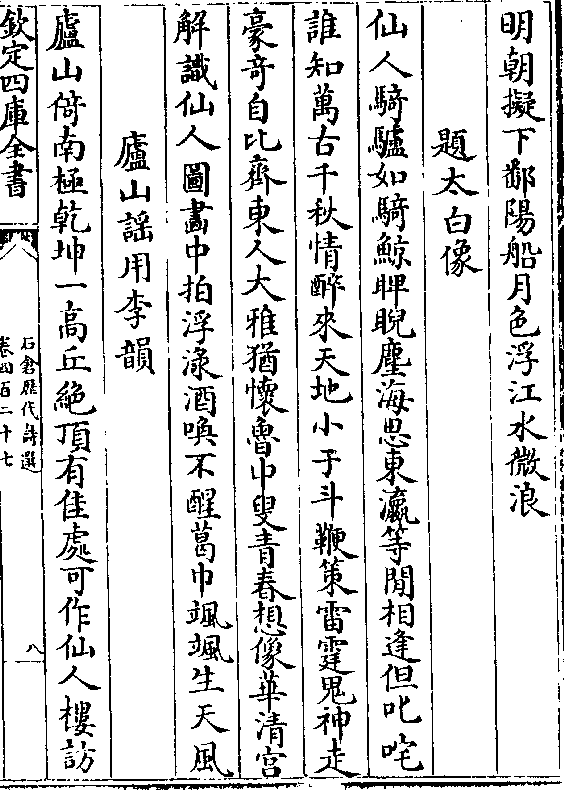 明朝擬下鄱陽船月色浮江水微浪
題太白像
仙人騎驢如騎鯨睥睨塵海思東瀛等閒相逢但叱咤
誰知萬古千秋情醉來天地小于斗鞭策雷霆鬼神走
豪奇自比齊東人大雅猶懷魯中叟青春想像華清宮
解識仙人圖畫中拍浮淥酒喚不醒葛巾颯颯生天風
廬山謡用李韻
廬山倚南極乾坤一高丘絶頂有佳處可作仙人樓訪
欽定四庫全書
石倉歷代詩選
卷四百二十七
八